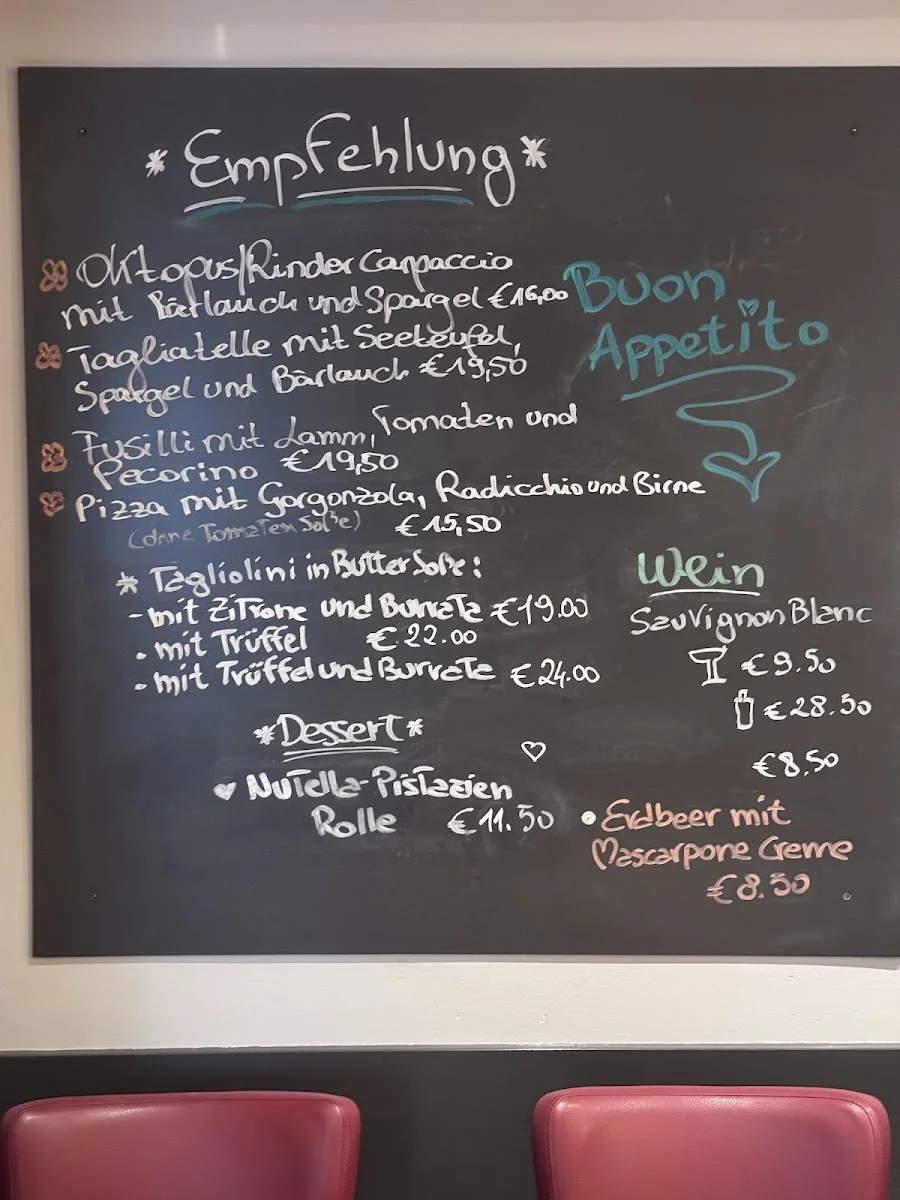 *Empfehlung*
Oktopus/Rinder Carpaccio
mit Bärlauch und Spargel €16,00
Tagliatelle mit Seeteufel,
Spargel und Bärlauch €19,50
Fusilli mit Lamm, Tomaten und
Pecorino €19,50
Pizza mit Gorgonzola, Radicchio und Birne
(ohne Tomaten Soße) €15,50
* Tagliolini in Butter Soße:
- mit Zitrone und Burrata €19.00
- mit Trüffel €22.00
- mit Trüffel und Burrata €24.00
*Dessert*
Nutella-Pistazien
Rolle €11.50
Buon
Appetito
Wein
Sauvignon Blanc
€9.50
€28.50
€8.50
• Erdbeer mit
Mascarpone Creme
€8.50